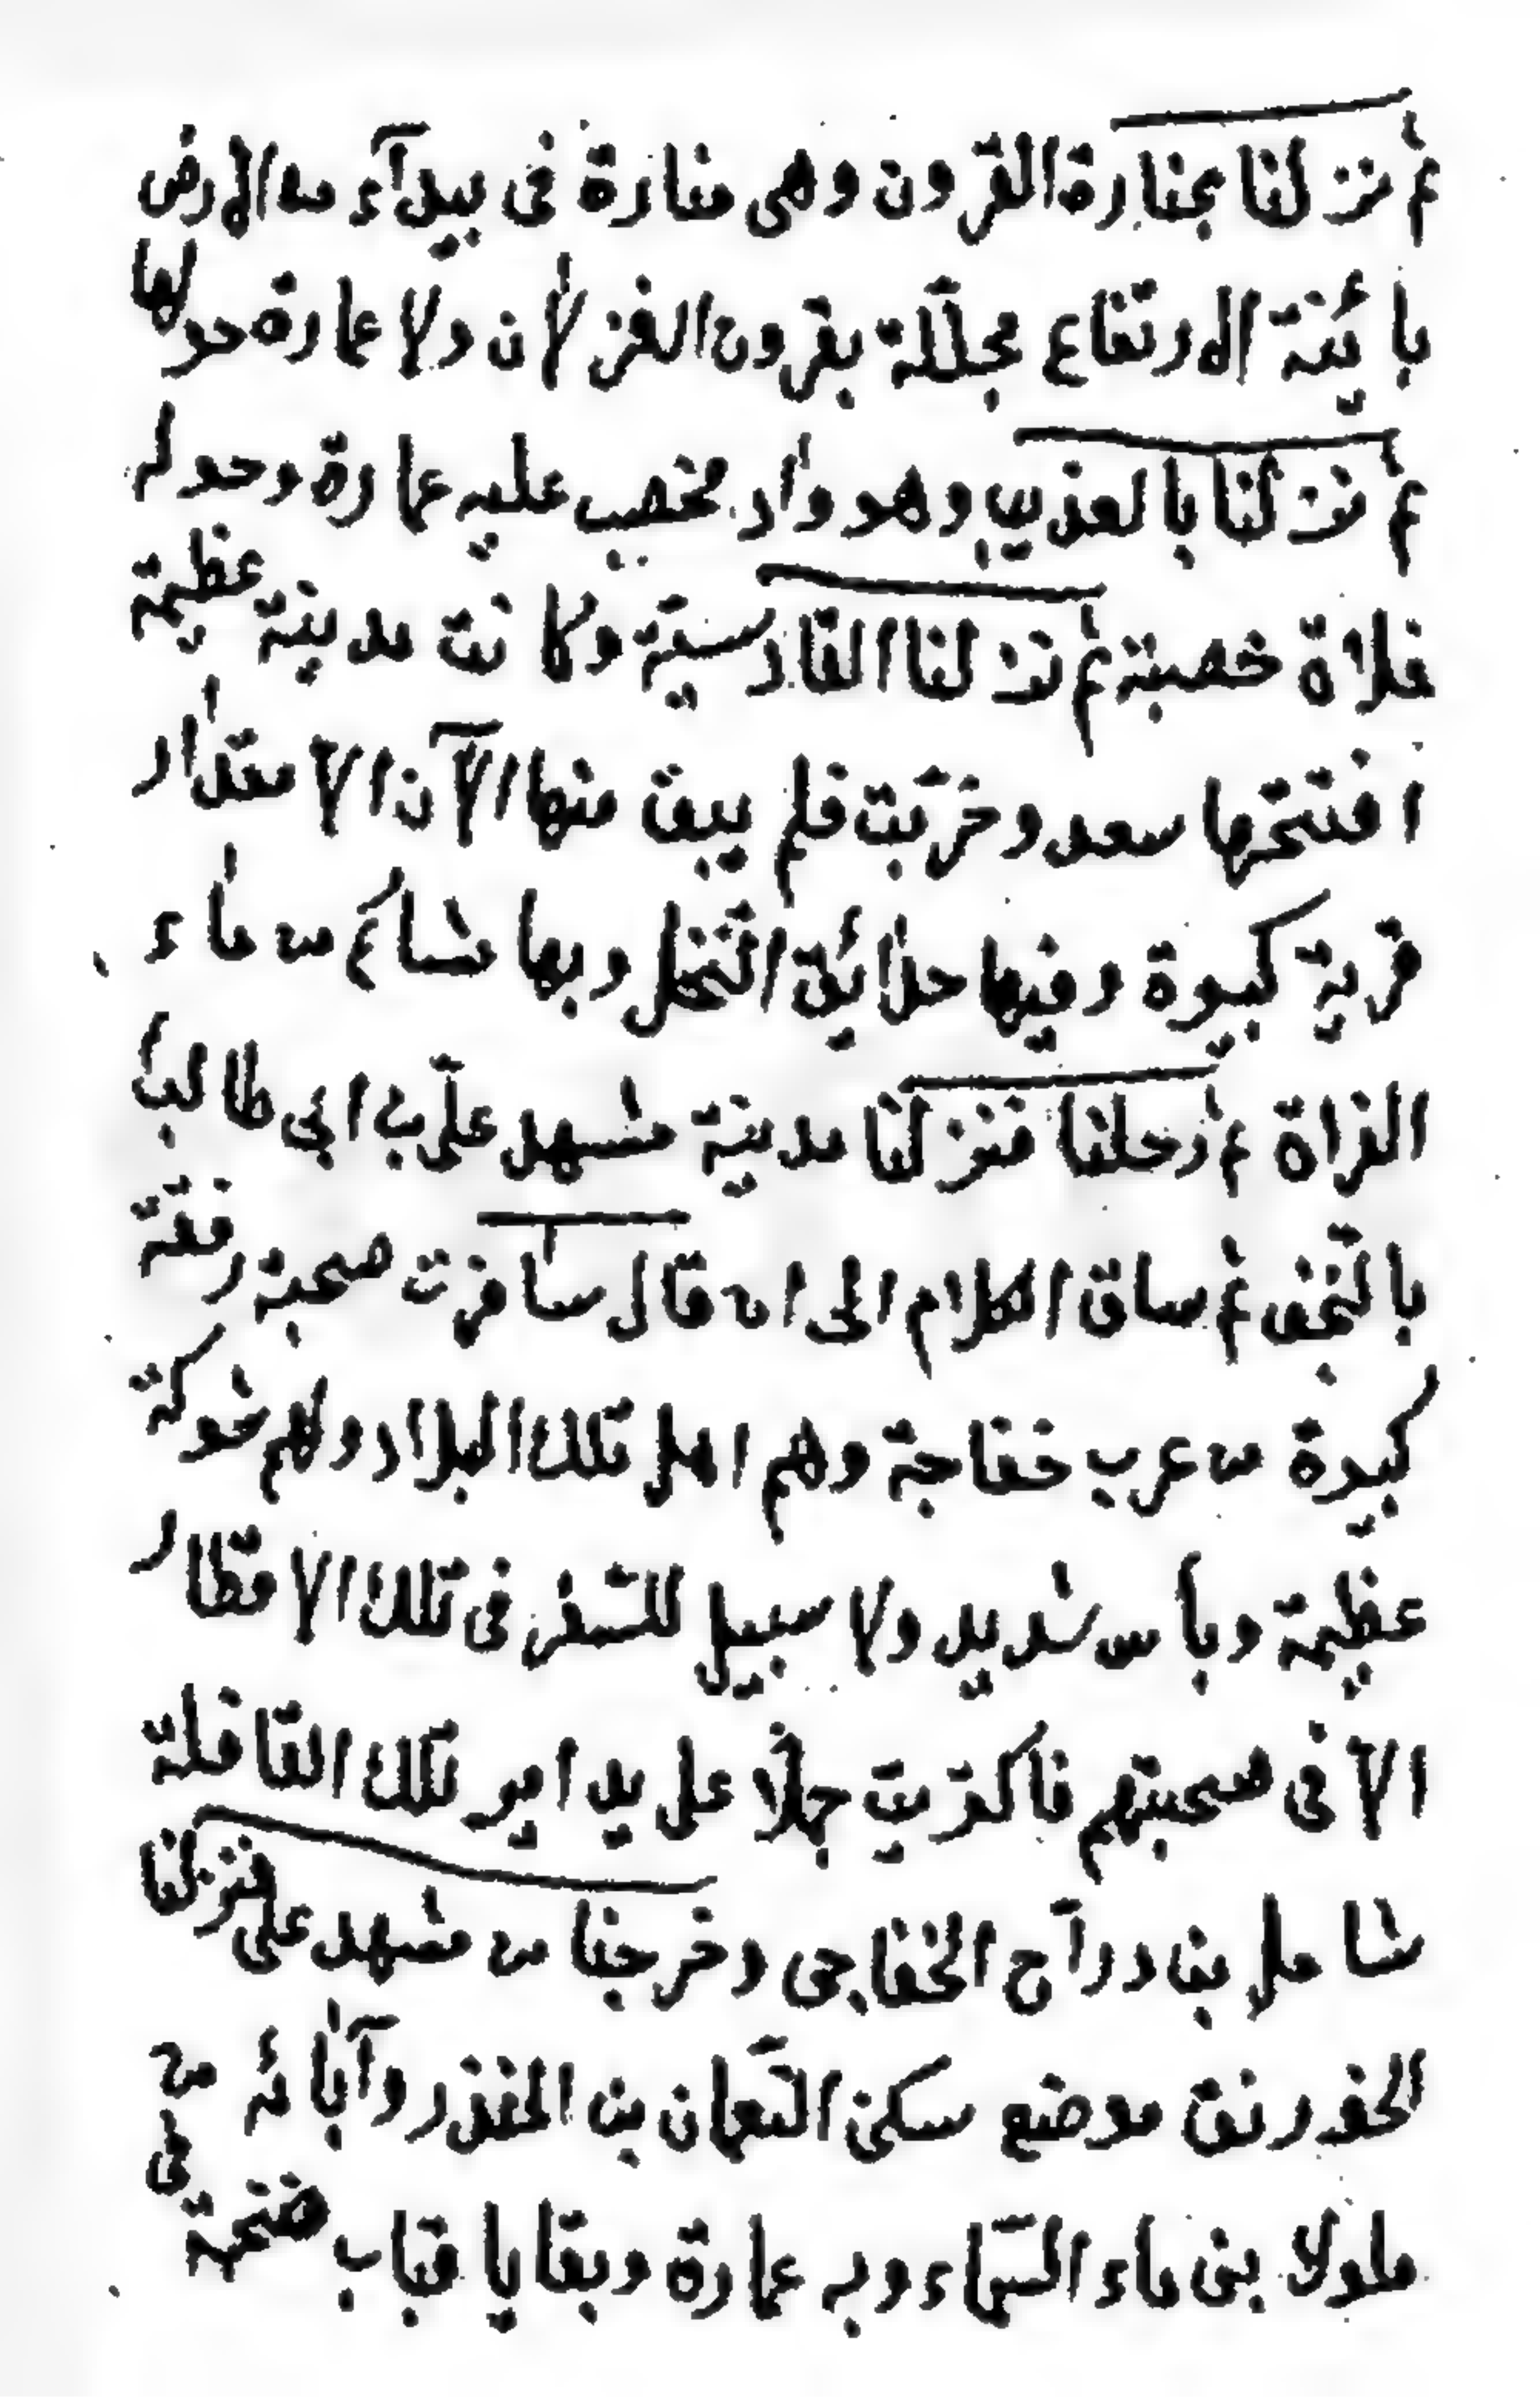 ثم نزلنا بمنارة القرون وهى منارة فى بيدآء من الارض
بائينة الارتفاع مجلّلة بقرون الغزلان ولا عمارة حولها
ثم نزلنا بالعذيب وهو واد مخصب عليه عمارة وحوله
فلاة خصبة ثم نزلنا القادسيّة وكانت مدينة عظيمة
افتتحها سعد وخرّبت فلم يبق منها الآن الا مقدار
قرية كبيرة وفيها حدائق النّخل وبها مشاكم من ماء
الفراة ثم رحلنا فنزلنا مدينة مشهد علّي بن ابى طالب
بالنّجف ثم ساق الكلام الى ان قال سافرت صحبة رفقة
كبيرة من عرب خفاجة وهم اهل تلك البلاد ولهم شوكة
عظيمة وبأس شديد ولا سبيل للسّفر فى تلك الاقطار
الّا فى صحبتهم فاكتريت جملًا على يد امير تلك القافلة
شامل بن درآج الخفاجى وخرجنا من مشهد على فنزلنا
الخورنق موضع سكنى النّعمان بن المنذر وآبائه من
ملوك بنى ماء السّماء وبه عمارة وبقايا قباب ضخمة فى